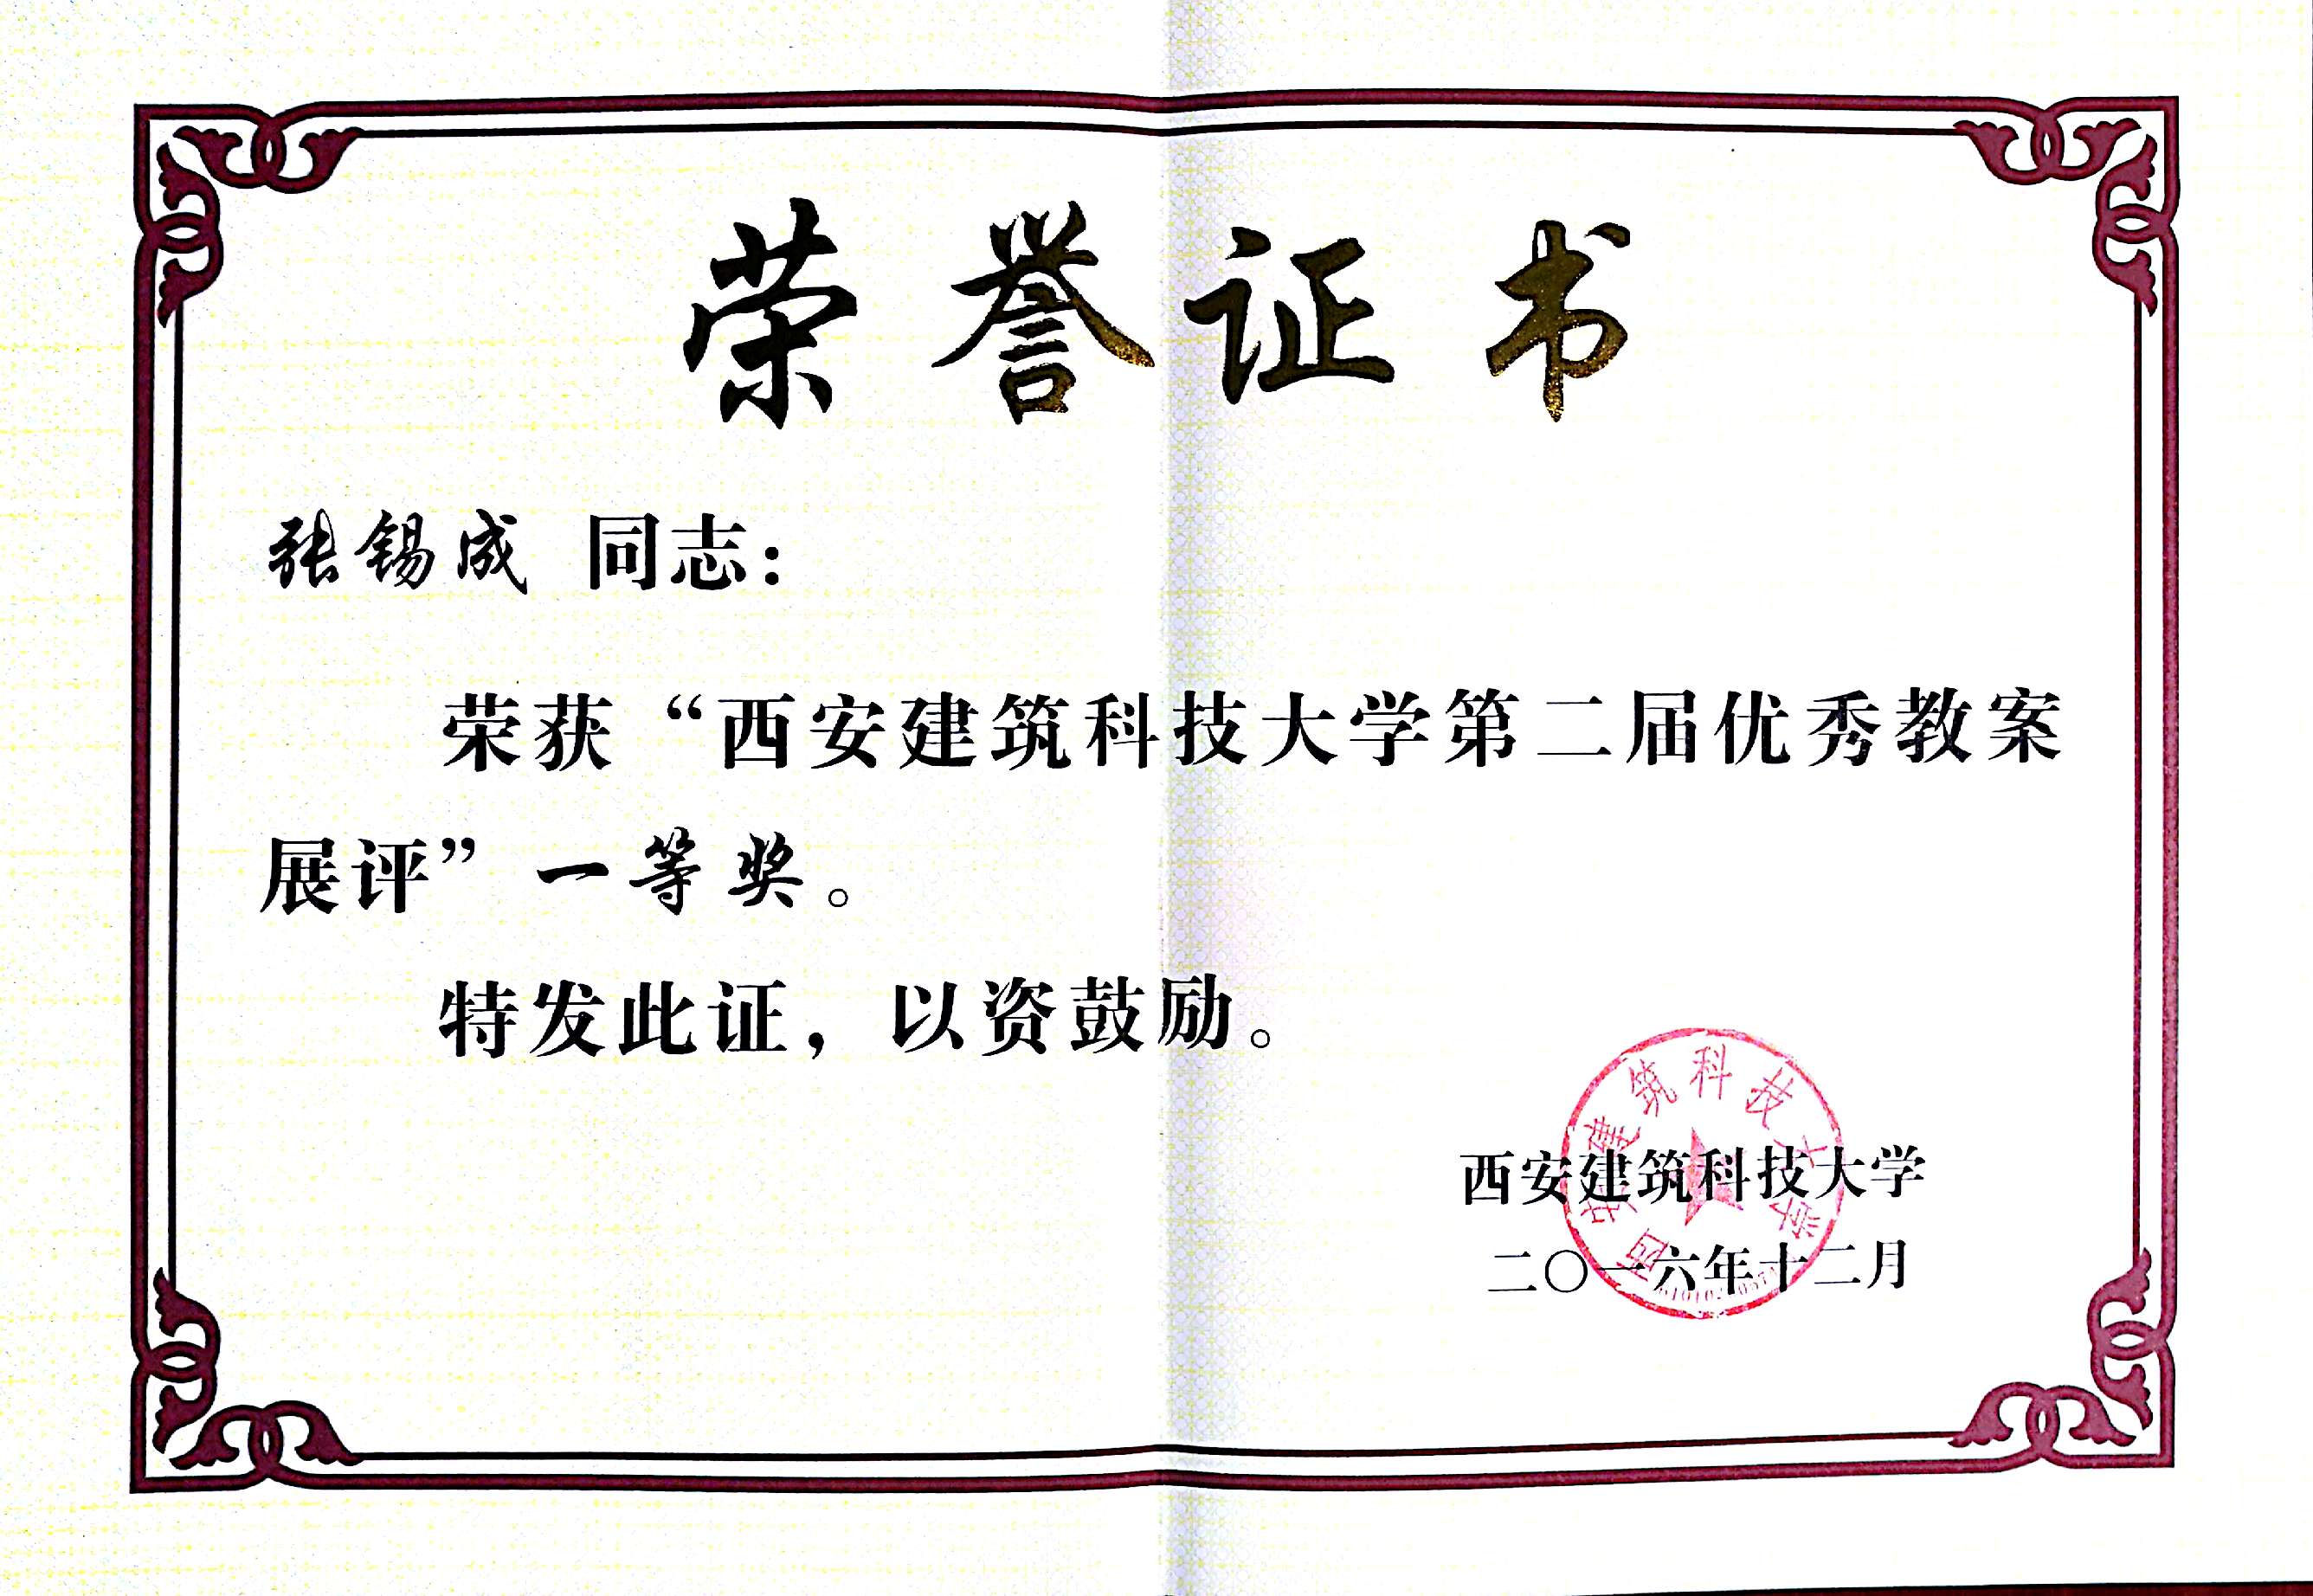 荣誉证书
张锡成 同志：
荣获“西安建筑科技大学第二届优秀教案
展评”一等奖。
特发此证，以资鼓励。
西安建筑科技大学
西安建筑科技大学
二〇一六年十二月